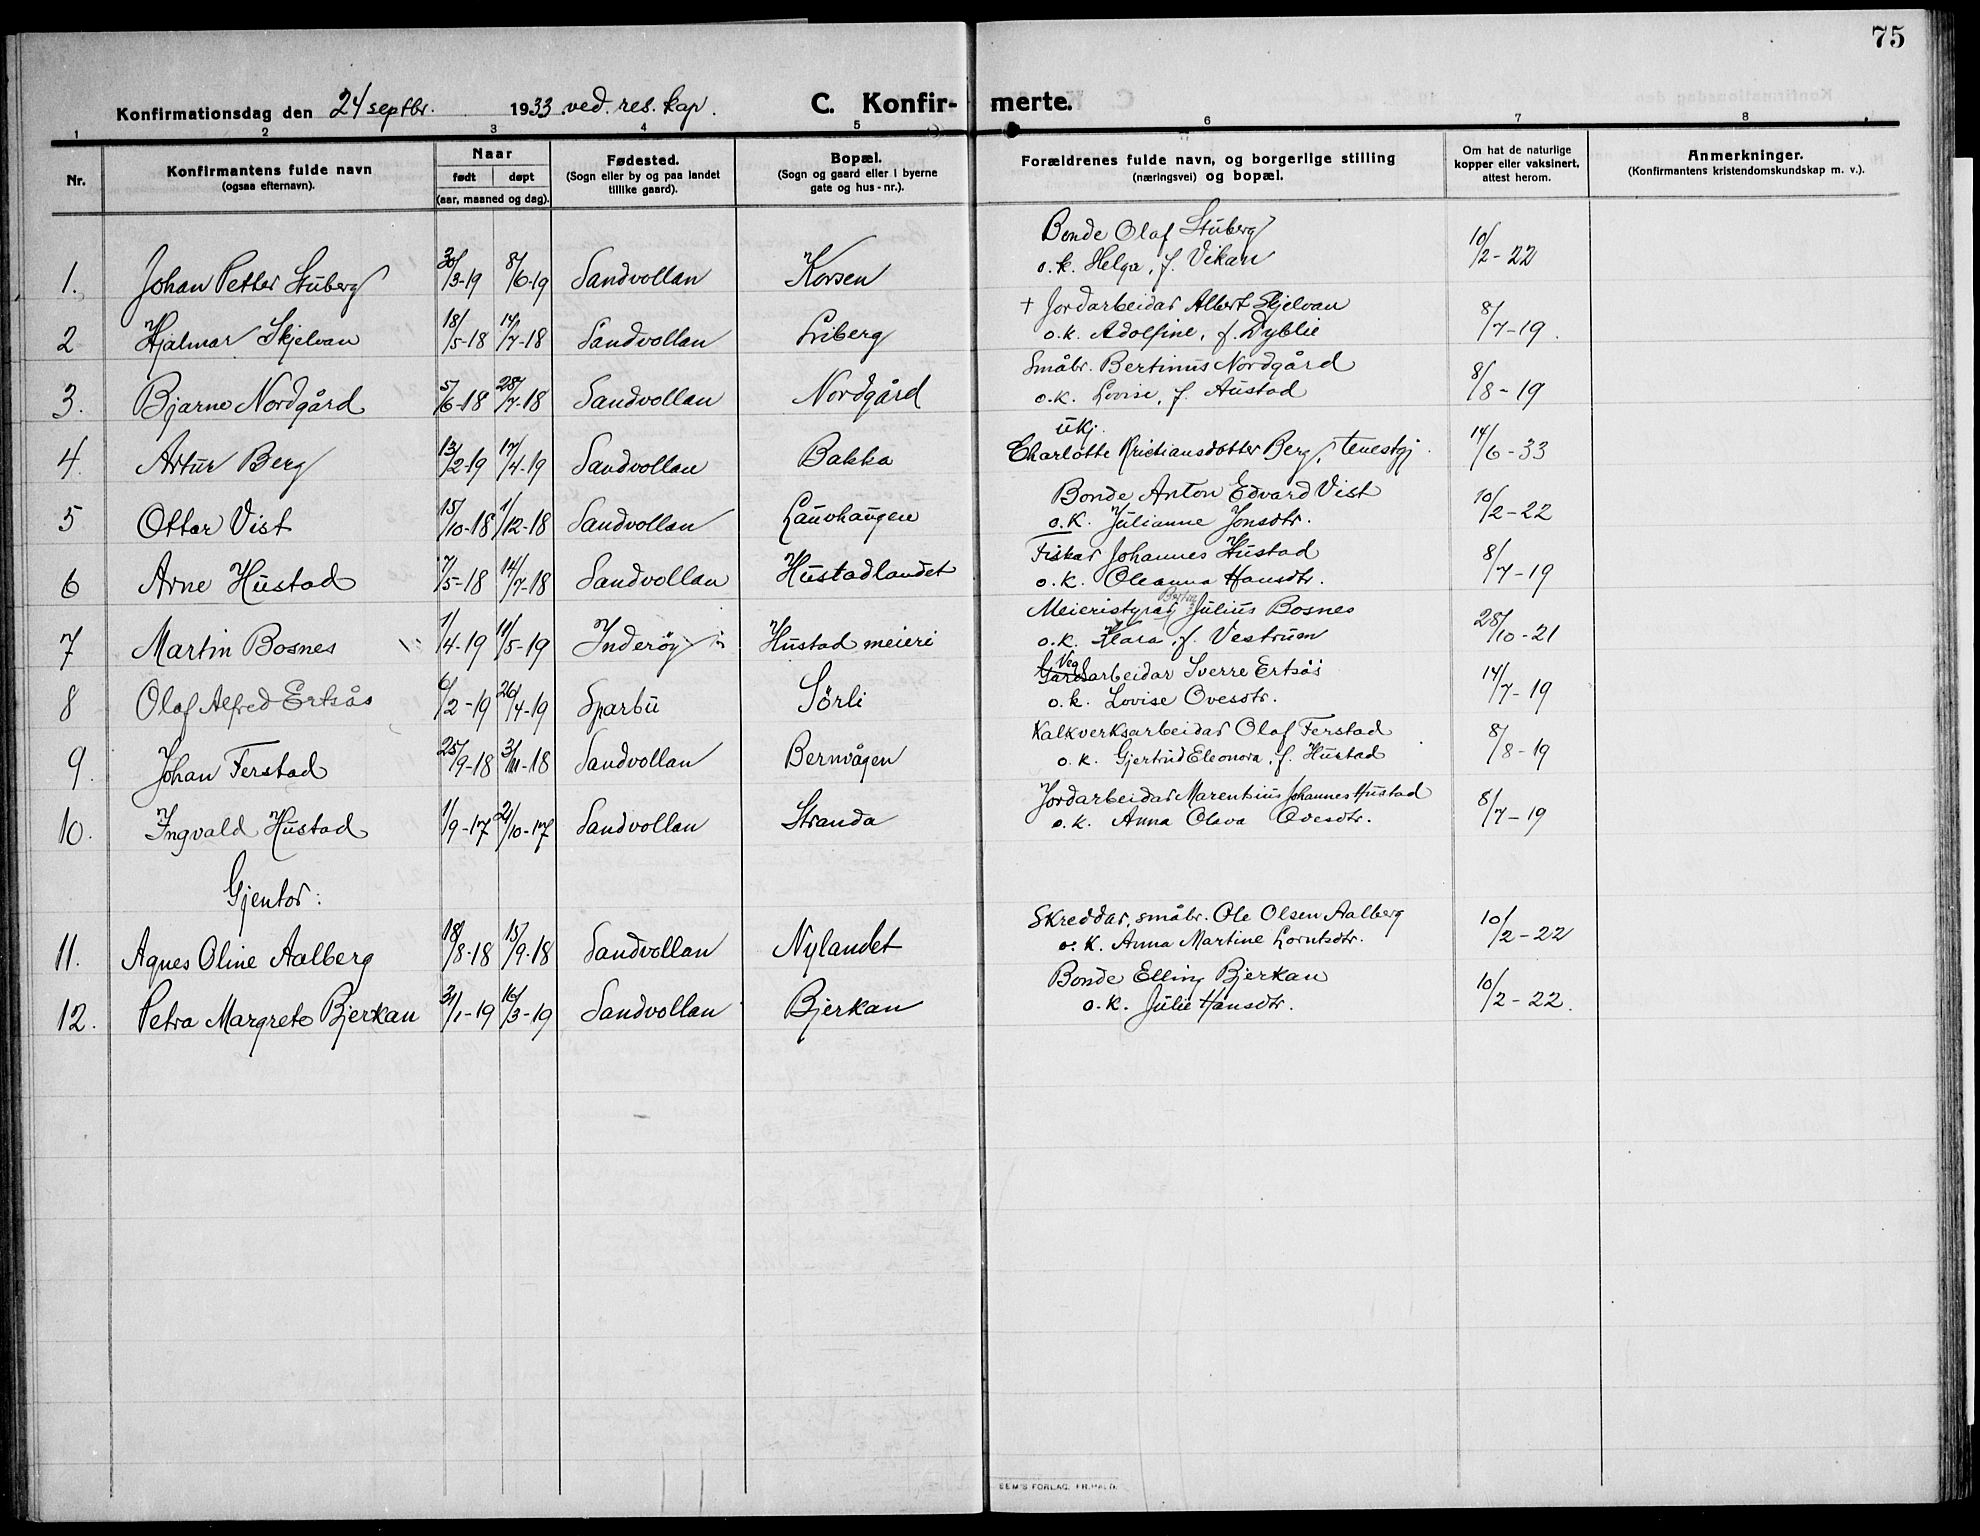 75
Konfirmationsdag den 24 septbr. 1933 ved. res. kap. C. Konfir- merte.
1 2 3 4 5 6 7 8
Nr. Konfirmantens fulde navn (ogsaa efternavn). Naar født døpt (aar, maaned og dag). Fødested. (Sogn eller by og paa landet tillike gaard). Bopæl. (Sogn og gaard eller i byerne gate og hus-nr.). Forældrenes fulde navn, og borgerlige stilling (næringsvei) og bopæl. Om hat de naturlige kopper eller vaksinert, attest herom. Anmerkninger. (Konfirmantens kristendomskundskap m. v.).
Bonde Olaf Stuberg
1. Johan Petter Stuberg 30/3-19 8/6-19 Sandvollan Korsen o. k. Helga, f. Vikan 10/2-22
+ Jordarbeidar Albert Skjelvan
2 Hjalmar Skjelvan 18/5-18 14/7-18 Sandvollan Liberg o.k. Adolfine, f. Dyblie 8/7-19.
Småbr. Bertinus Nordgård
3. Bjarne Nordgård 5/6-18 28/7-18 Sandvollan Nordgård o.k. Lovise, f. Austad 8/8-19
ukj.
4. Artur Berg 13/2-19 17/4-19 Sandvollan Bakka Charlotte Kristiansdotter Berg, tenestgj. 14/6-33
Bonde Anton Edvard Vist
5 Ottar Vist 15/10-18 1/12-18 Sandvollan Lauvhaugen o.k. Julianne Jonsdtr. 10/2-22
Fiskar Johannes Hustad
6 Arne Hustad 7/5-18 14/7-18 Sandvollan Hustadlandet o.k. Oleanna Hansdtr. 8/7-19
Meieristyrar Julius Bosnes
7 Martin Bosnes 1/4-19 11/5-19 Inderøy Hustad meieri o.k. Klara, f. Vestrum 28/10-21
Gards Veg arbeidar Sverre Ertsås
8 Olaf Alfred Ertsås 6/2-19 26/4-19 Sparbu Sörli o.k. Lovise Ovesdtr. 14/7-19
Kalkverksarbeidar Olaf Ferstad
9. Johan Ferstad 25/9-18 3/11-18 Sandvollan Bernvågen o.k. Gjertrud Eleonora, f. Hustad 8/8-19
Jordarbeidar Marentsius Johannes Hustad
10. Ingvald Hustad 1/9-17 21/10-17 Sandvollan Stranda o.k. Anna Olava Ovesdtr. 8/7-19
Gjentor:
Skreddar, småbr. Ole Olsen Aalberg
11. Agnes Oline Aalberg 18/8-18 15/9-18 Sandvollan Nylandet o. k. Anna Martine Lorntsdtr. 10/2-22
Bonde Elling Bjerkan
12. Petra Margrete Bjerkan 31/1-19 16/3-19 Sandvollan Bjerkan o.k. Julie Hansdtr. 10/2-22.
SEM'S FORLAG, FR.HALD.